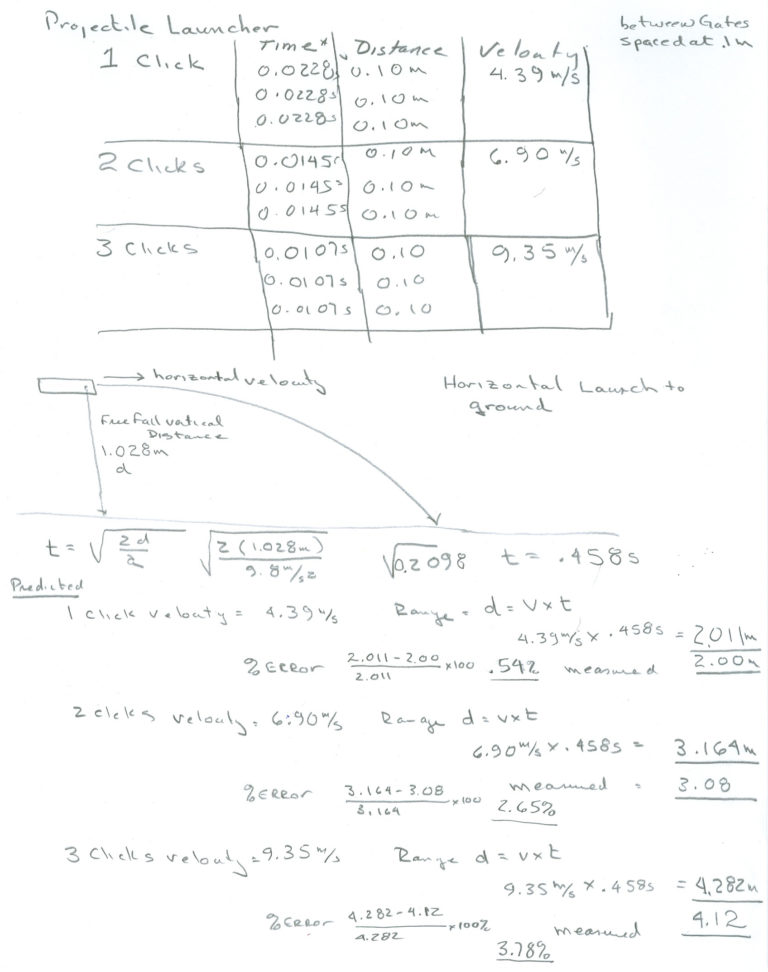 Projectile Launcher
between Gates
spaced at .1m
Time* Distance Velocity
1 Click 0.0228s 0.10m 4.39 m/s
0.0228s 0.10m
0.0228s 0.10m
2 Clicks 0.0145s 0.10m 6.90 m/s
0.0145s 0.10m
0.0145s 0.10m
3 Clicks 0.0107s 0.10 9.35 m/s
0.0107s 0.10
0.0107s 0.10
→ horizontal velocity
Horizontal Launch to
ground
Free Fall vatical
Distance
1.028m
d
t = √(2d/a) √(2(1.028m)/9.8m/s2) √0.2098 t = .458s
Predicted
1 Click velocity = 4.39 m/s Range = d = v×t
4.39m/s × .458s = 2.011m
% Error (2.011-2.00)/2.011 ×100 .54% measured 2.00m
2 clicks velocity = 6.90 m/s Range d = v×t
6.90m/s × .458s = 3.164m
% Error (3.164-3.08)/3.164 ×100 2.65% measured = 3.08
3 Clicks velocity = 9.35 m/s Range d = v×t
9.35 m/s × .458s = 4.282m
% Error (4.282-4.12)/4.282 ×100% 3.78% measured 4.12